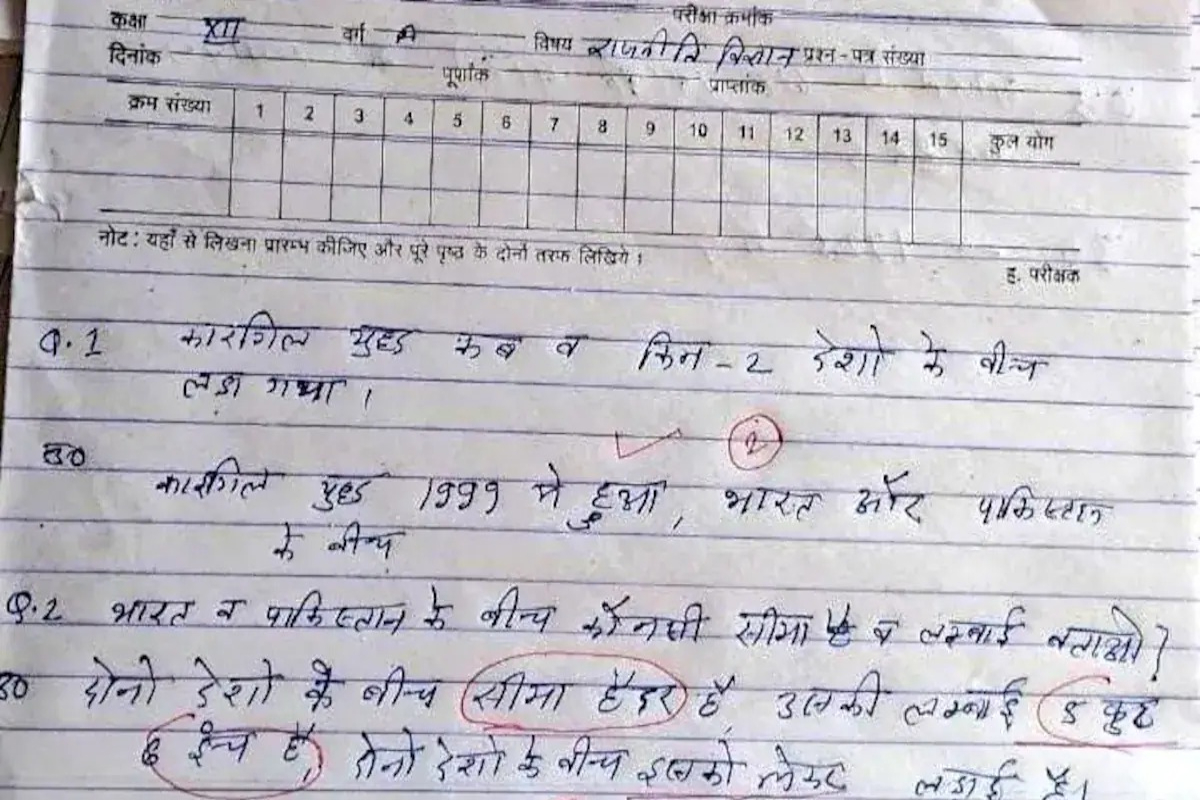 परीक्षा क्रमांक
कक्षा XII वर्ग विषय राजनीति विज्ञान प्रश्न-पत्र संख्या
दिनांक पूर्णांक प्राप्तांक
क्रम संख्या 1 2 3 4 5 6 7 8 9 10 11 12 13 14 15 कुल योग
नोट : यहाँ से लिखना प्रारम्भ कीजिए और पूरे पृष्ठ के दोनों तरफ लिखिये ।
ह. परीक्षक
Q.1 कारगिल युद्ध कब व किन-2 देशो के बीच
लडा गया ।
2
उ० कारगिल युद्ध 1999 मे हुआ, भारत और पाकिस्तान
के बीच
Q.2 भारत व पाकिस्तान के बीच कौनसी सीमा है व लम्बाई बताओ?
उ० दोनो देशो के बीच सीमा हैदर है उसकी लम्बाई 5 फुट
6 ईन्च है, दोनो देशो के बीच इसको लेकर लडाई है।